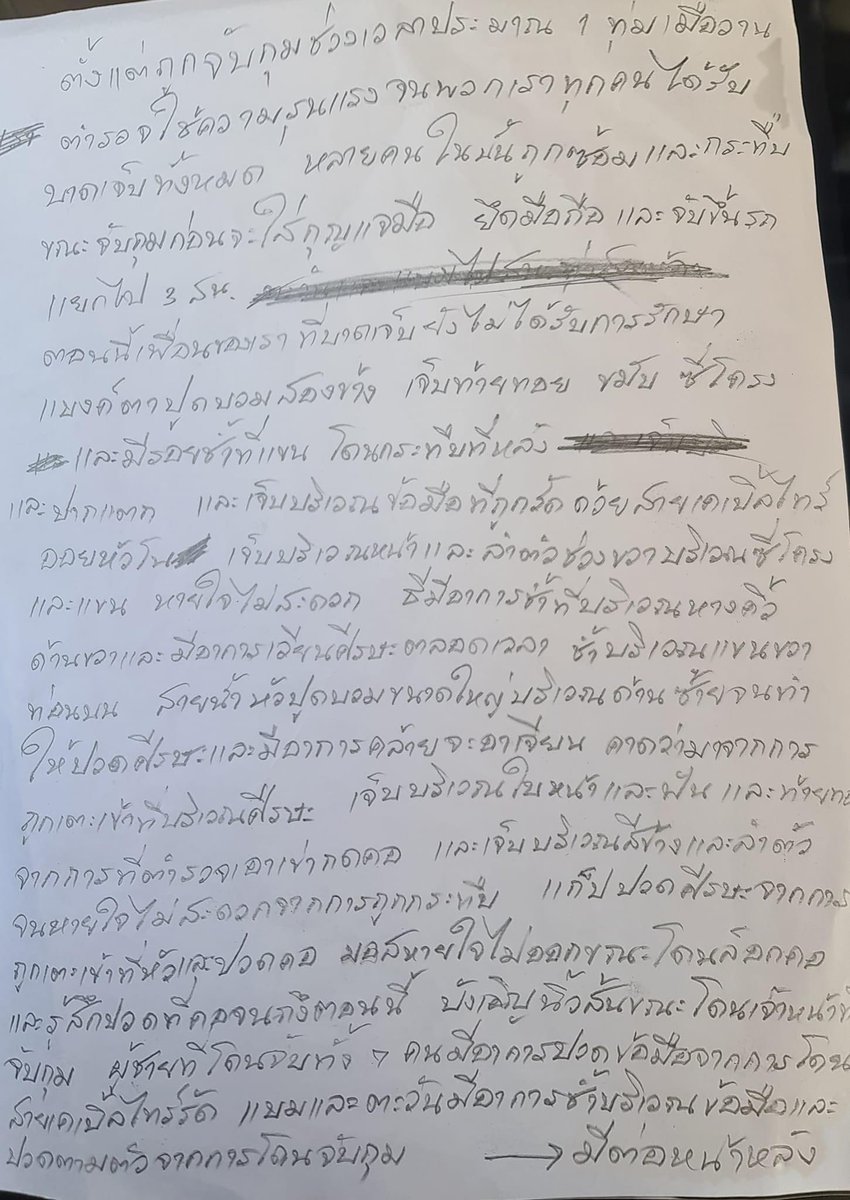 ตั้งแต่ถูกจับกุมช่วงเวลาประมาณ 1 ทุ่มเมื่อวาน
ตำรวจใช้ความรุนแรงจนพวกเราทุกคนได้รับ
บาดเจ็บทั้งหมด หลายคนในนั้นถูกซ้อมและกระทืบ
ขณะจับกุมก่อนจะใส่กุญแจมือ ยึดมือถือและจับขึ้นรถ
แยกไป 3 สน.
ตอนนี้เพื่อนของเราที่บาดเจ็บยังไม่ได้รับการรักษา
แบงค์ตาปูดบวมสองข้าง เจ็บท้ายทอย ขมับ ซี่โครง
และมีรอยช้ำที่แขน โดนกระทืบที่หลัง
และปากแตก และเจ็บบริเวณข้อมือที่ถูกรัดด้วยสายเคเบิ้ลไทร์
ออยหัวโน เจ็บบริเวณหน้าและลำตัวช่วงขวาบริเวณซี่โครง
และแขน หายใจไม่สะดวก ธีมีอาการช้ำที่บริเวณหางคิ้ว
ด้านขวาและมีอาการเวียนศีรษะตลอดเวลา ช้ำบริเวณแขนขวา
ท่อนบน สายน้ำหัวปูดบวมขนาดใหญ่บริเวณด้านซ้ายจนทำ
ให้ปวดศีรษะและมีอาการคล้ายจะอาเจียน คาดว่ามาจากการ
ถูกเตะเข้าที่บริเวณศีรษะ เจ็บบริเวณใบหน้าและฟัน และท้ายทอ
จากการที่ตำรวจเอาเข่ากดคอ และเจ็บบริเวณสีข้างและลำตัว
จนหายใจไม่สะดวกจากการถูกกระทืบ แก๊ปปวดศีรษะจากการ
ถูกเตะเข้าที่หัวและปวดคอ มอสหายใจไม่ออกขณะโดนล็อกคอ
และรู้สึกปวดที่คอจนถึงตอนนี้ บังเอิญนิ้วสั้นขณะโดนเจ้าหน้าที่
จับกุม ผู้ชายที่โดนจับทั้ง 7 คนมีอาการปวดข้อมือจากการโดน
สายเคเบิ้ลไทร์รัด แบมและตะวันมีอาการช้ำบริเวณข้อมือและ
ปวดตามตัวจากการโดนจับกุม → มีต่อหน้าหลัง